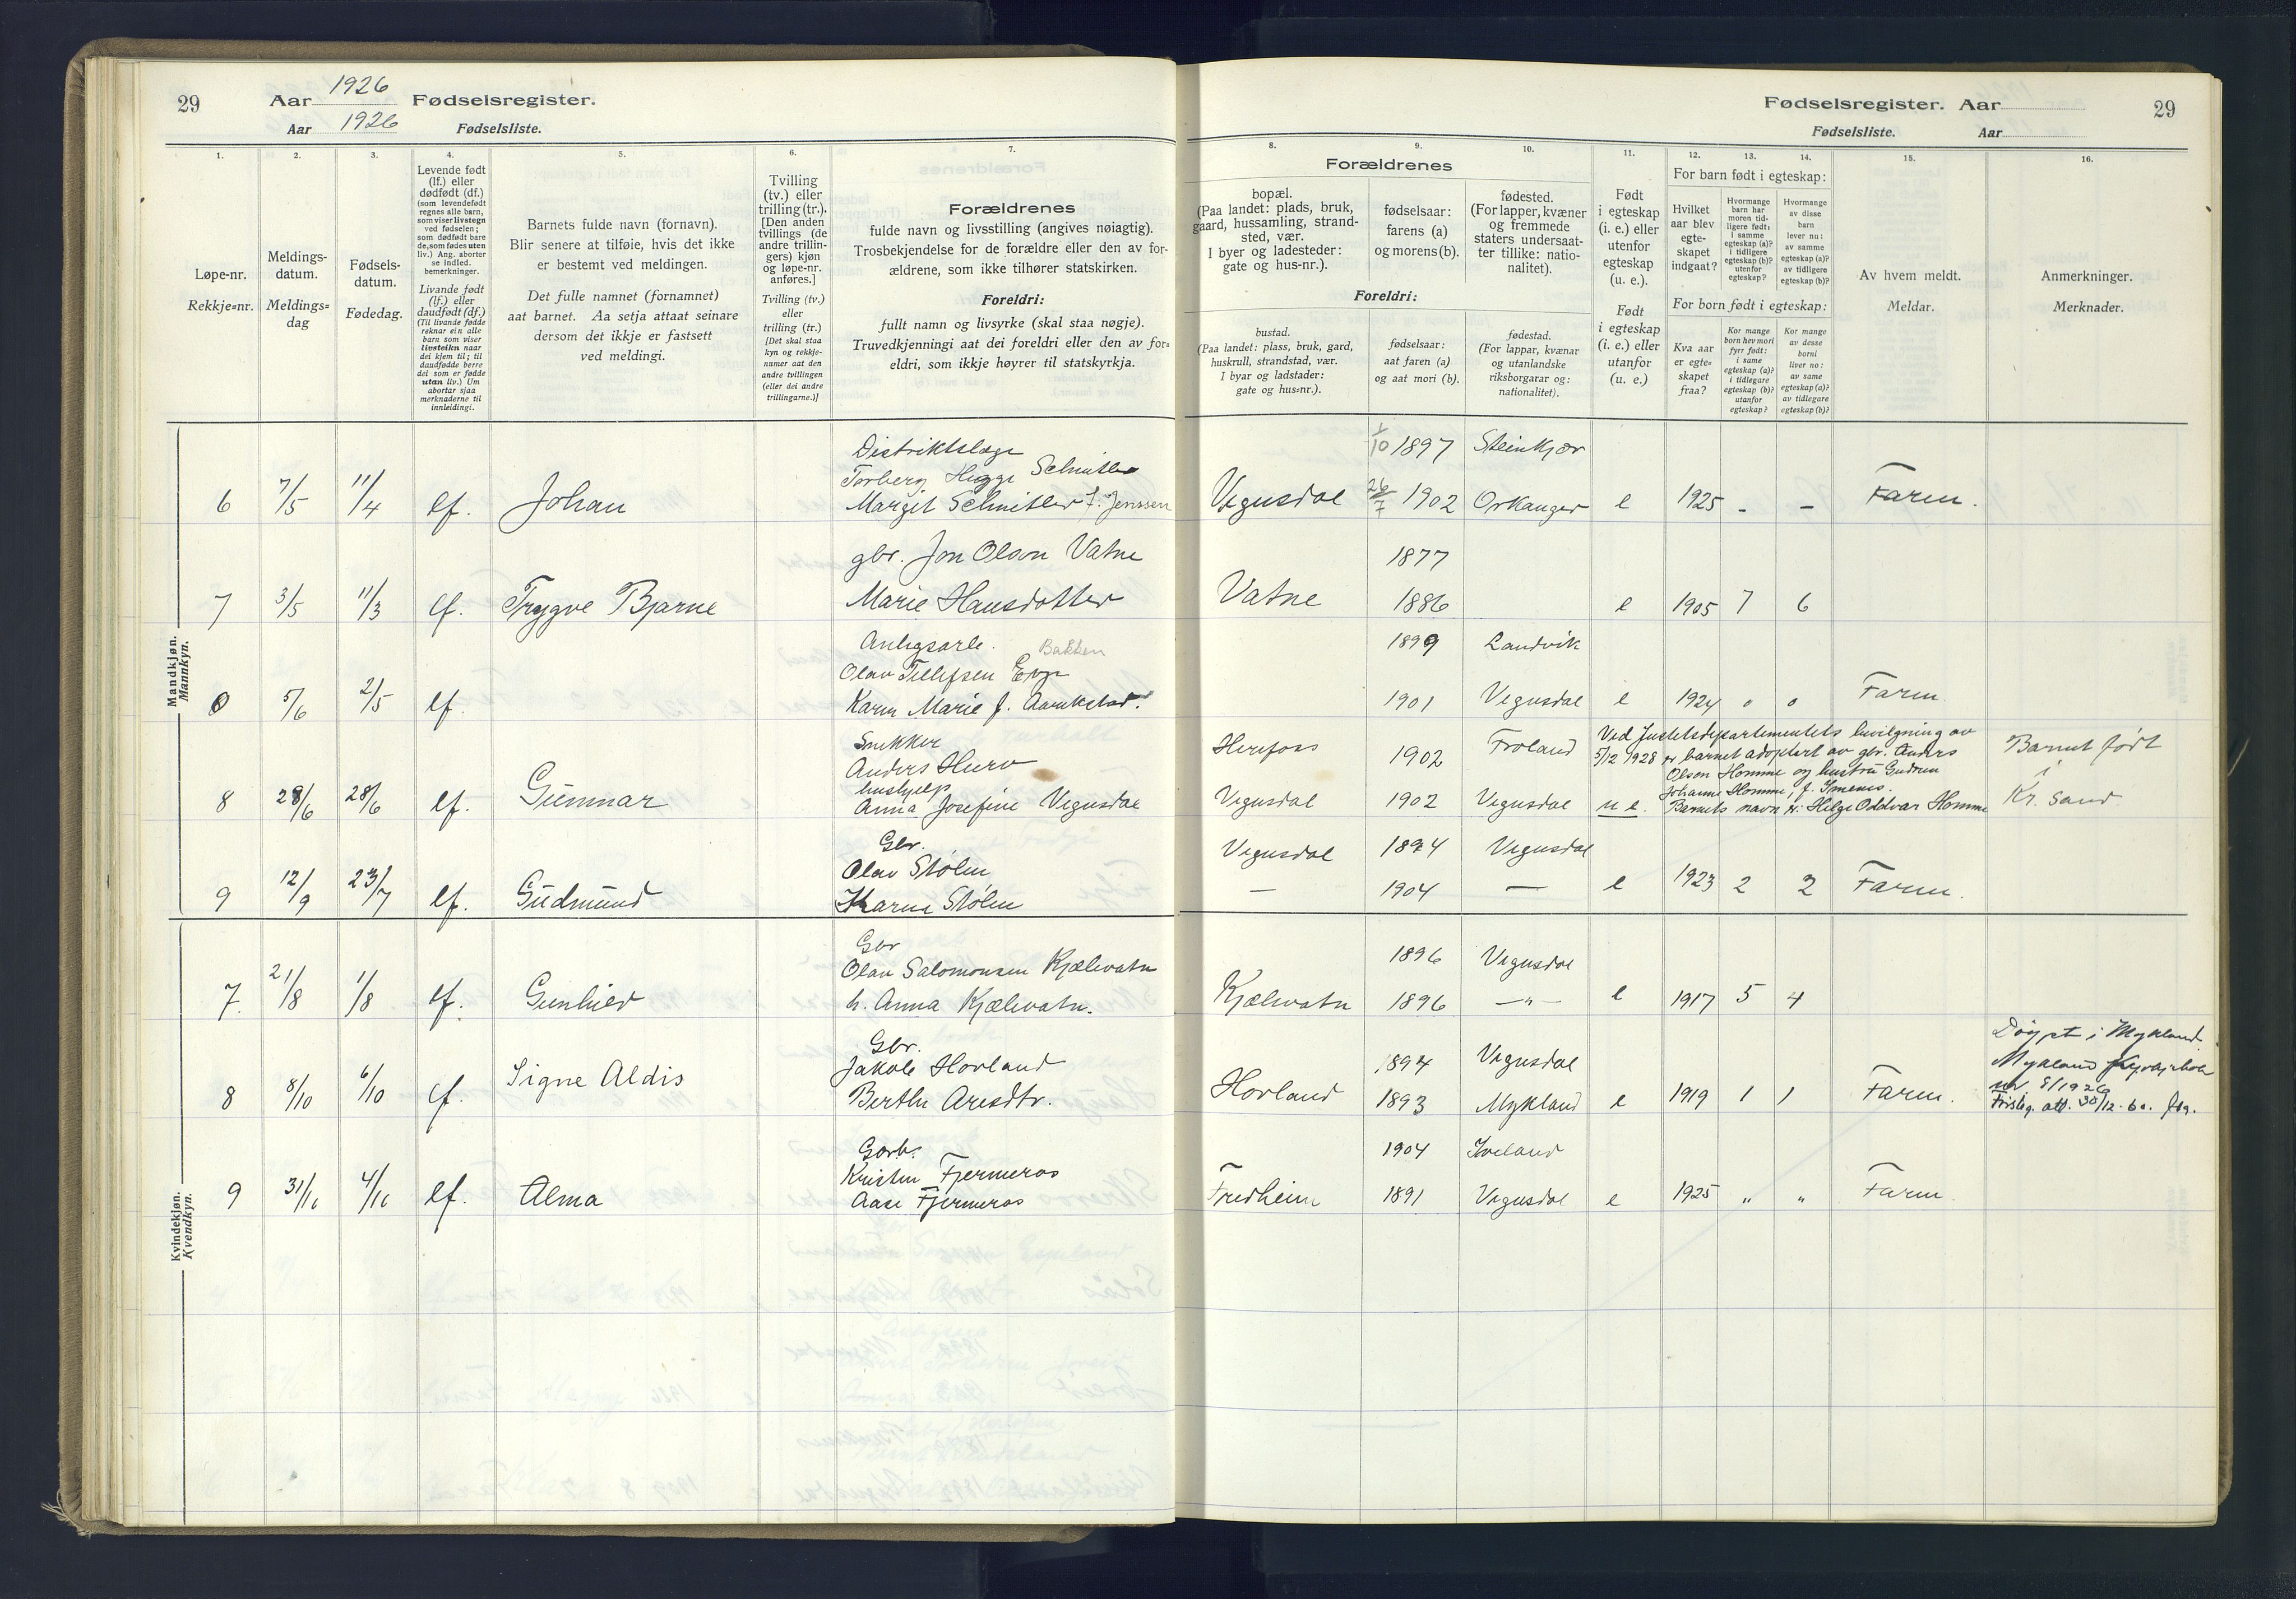 29
Aar 1926 Fødselsregister.
Aar 1926 Fødselsliste.
Fødselsregister. Aar
Fødselsliste. Aar
29
1.
Løpe-nr.
Rekkje=nr.
2.
Meldings-
datum.
Meldings=
dag
3.
Fødsels-
datum.
Fødedag.
4.
Levende født
(lf.) eller
dødfødt (df.)
(som levendefødt
regnes alle barn,
som viser livstegn
ved fødselen;
som dødfødt bare
de, som fødes uten
liv.) Ang. aborter
se indled.
bemerkninger.
Livande født
(lf.) eller
daudfødt (df.)
(Til livande fødde
reknar ein alle
barn som viser
livsteikn naar
dei kjem til; til
daudfødde berre
dei som er fødde
utan liv.) Um
abortar sjaa
merknaderne til
innleidingi.
5.
Barnets fulde navn (fornavn).
Blir senere at tilføie, hvis det ikke
er bestemt ved meldingen.
Det fulle namnet (fornamnet)
aat barnet. Aa setja attaat seinare
dersom det ikkje er fastsett
ved meldingi.
6.
Tvilling
(tv.) eller
trilling (tr.).
[Den anden
tvillings (de
andre trillin-
gers) kjøn
og løpe-nr.
anføres.]
Tvilling (tv.)
eller
trilling (tr.)
[Det skal staa
kyn og rekkje-
numer aat den
andre tvillingen
(eller dei andre
trillingarne.)]
7.
Forældrenes
fulde navn og livsstilling (angives nøiagtig).
Trosbekjendelse for de forældre eller den av for-
ældrene, som ikke tilhører statskirken.
Foreldri:
fullt namn og livsyrke (skal staa nøgje).
Truvedkjenningi aat dei foreldri eller den av for=
eldri, som ikkje høyrer til statskyrkja.
Forældrenes
8.
bopæl.
(Paa landet: plads, bruk,
gaard, hussamling, strand-
sted, vær.
I byer og ladesteder:
gate og hus-nr.).
9.
fødselsaar:
farens (a)
og morens (b).
10.
fødested.
(For lapper, kvæner
og fremmede
staters undersaat-
ter tillike: natio-
nalitet).
Foreldri:
bustad.
(Paa landet: plass, bruk, gard,
huskrull, strandstad, vær.
I byar og ladstader:
gate og hus=nr.).
fødselsaar:
aat faren (a)
og aat mori (b).
fødestad.
(For lappar, kvænar
og utanlandske
riksborgarar og:
nationalitet).
11.
Født
i egteskap
(i. e.) eller
utenfor
egteskap
(u. e.).
Født
i egteskap
(i. e.) eller
utanfor
(u. e.)
For barn født i egteskap:
12.
Hvilket
aar blev
egte-
skapet
indgaat?
13.
Hvormange
barn har
moren tid-
ligere født:
i samme
egteskap (a)?
i tidligere
egteskap (b)?
utenfor
egteskap?
14.
Hvormange
av disse
barn
lever nu:
av samme
egteskap (a)?
av tidligere
egteskap (b)?
For born født i egteskap:
Kva aar
er egte-
skapet
fraa?
Kor mange
born hev mori
fyrr født:
i same
egteskap (a)?
i tidlegare
egteskap (b)?
utanfor
egteskap?
Kor mange
av desse
borni
liver no:
av same
egteskap (a)?
av tidlegare
egteskap (b)?
15.
Av hvem meldt.
Meldar.
16.
Anmerkninger.
Merknader.
Mandkjøn.
Mannkyn.
Distriktslæge
Torberg Higge Schnitler
6 7/5 11/4 lf. Johan Margit Schnitler f. Jenssen
1/10 1897 Steinkjær
Vegusdal 26/7 1902 Orkanger e 1925 - - Faren.
gbr. Jon Olson Vatne 1877
7 3/5 11/3 lf. Trygve Bjarne Marie Hansdotter Vatne 1886 e 1905 7 6
Bakken 1899 Landvik
Olav Tellefsen
0 5/6 2/5 lf. Karen Marie f. 1901 Vegusdal e 1924 0 0 Faren
Snekker
Anders
Herefoss 1902 Froland
Ved Justetsdepartementets bevilgning av
5/12 1928 er barnet adoptert av gbr. Anders
Olsen Homme og hustru Gudrun
Johanne Homme, f. Imenes.
Barnets navn er: Helge Oddvar Homme
Barnet født
i
Kr. sand
hushjelp
8 28/6 28/6 lf. Gunnar Anna Josefine Vegusdal Vegusdal 1902 Vegusdal u e.
Gbr.
Olav Stølen Vegusdal 1894 Vegusdal
9 12/9 23/7 lf. Gudmund Karen Stølen — 1904 — e 1923 2 2 Faren.
Kvindekjøn.
Kvendkyn.
Gbr
Olav Salomonsen Kjælevatn 1896 Vegusdal
7. 21/8 1/8 lf. Gunhild h. Anna Kjælevatn. Kjælevatn 1896 —"— e 1917 5 4
Gbr.
Jakob Hovland 1894 Vegusdal
8 8/10 6/10 lf. Signe Aldis Berthe Aresdtr. Hovland 1893 Mykland e 1919 1 1 Faren.
Døypt i Mykland.
Mykland
nr. 8/1926
att. 30/12-60.
Kristen Fjermeros 1904 Iveland
9 31/10 4/10 lf. Alma Aase Fjermeros Fredheim 1891 Vegusdal e 1925 " " Faren.